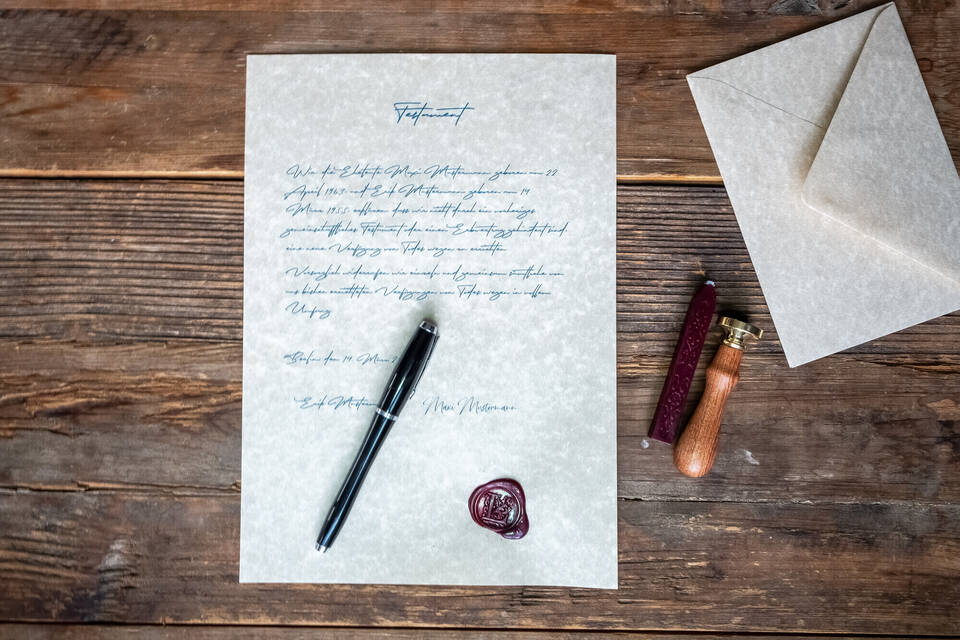 Testament
Wir die Eheleute Maxi Mustermann geboren am 22
April 1963 und Erik Mustermann geboren am 14
März 1955 eröffnen, dass wir nicht durch ein vorheriges
gemeinschaftliches Testament oder einen Erbvertrag gehindert sind
eine neue Verfügung von Todes wegen zu errichten.
Vorsorglich widerrufen wir einzeln und gemeinsam sämtliche von
uns bisher errichteten Verfügungen von Todes wegen in vollem
Umfang
Berlin den 14 März 2
Erik Musterm Maxi Mustermann